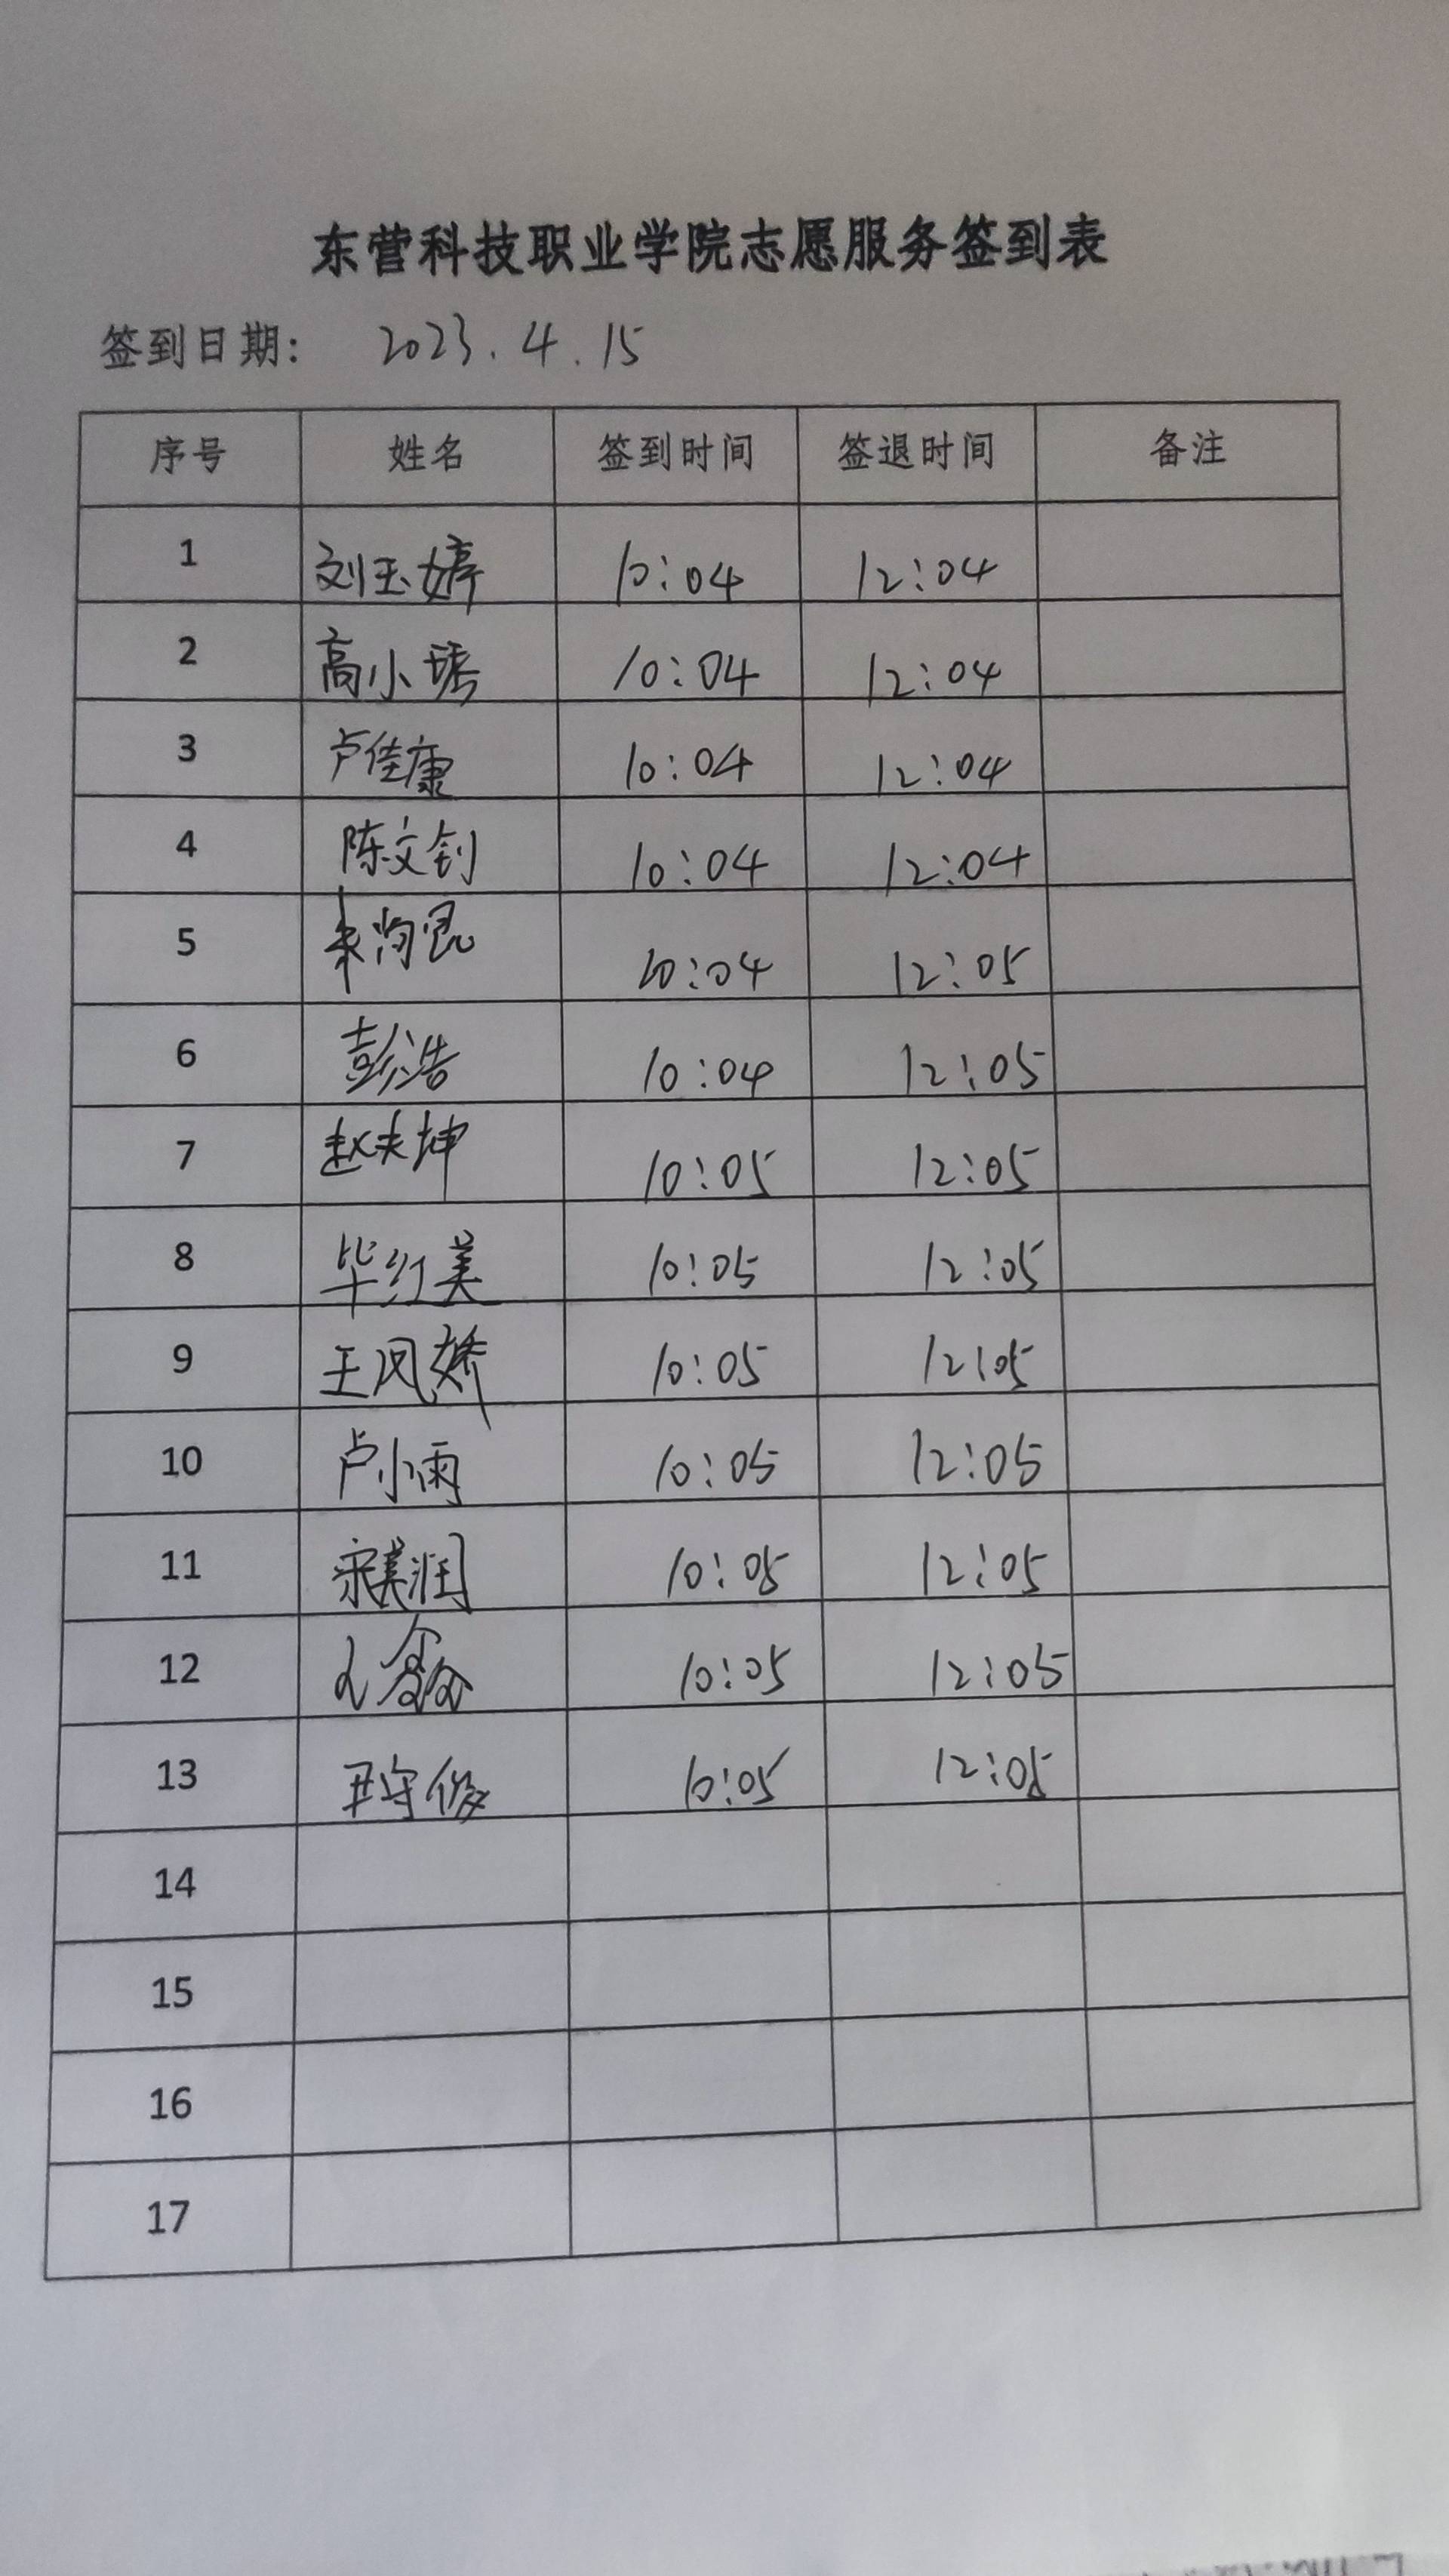 东营科技职业学院志愿服务签到表
签到日期: 2023.4.15
序号 姓名 签到时间 签退时间 备注
1 刘玉婷 10:04 12:04
2 高小 10:04 12:04
3 卢佳康 10:04 12:04
4 陈文钊 10:04 12:04
5 10:04 12:05
6 彭浩 10:04 12:05
7 赵夫坤 10:05 12:05
8 毕红美 10:05 12:05
9 王凤娇 10:05 12:05
10 卢小雨 10:05 12:05
11 宋美润 10:05 12:05
12 10:05 12:05
13 尹守俊 10:05 12:05
14
15
16
17